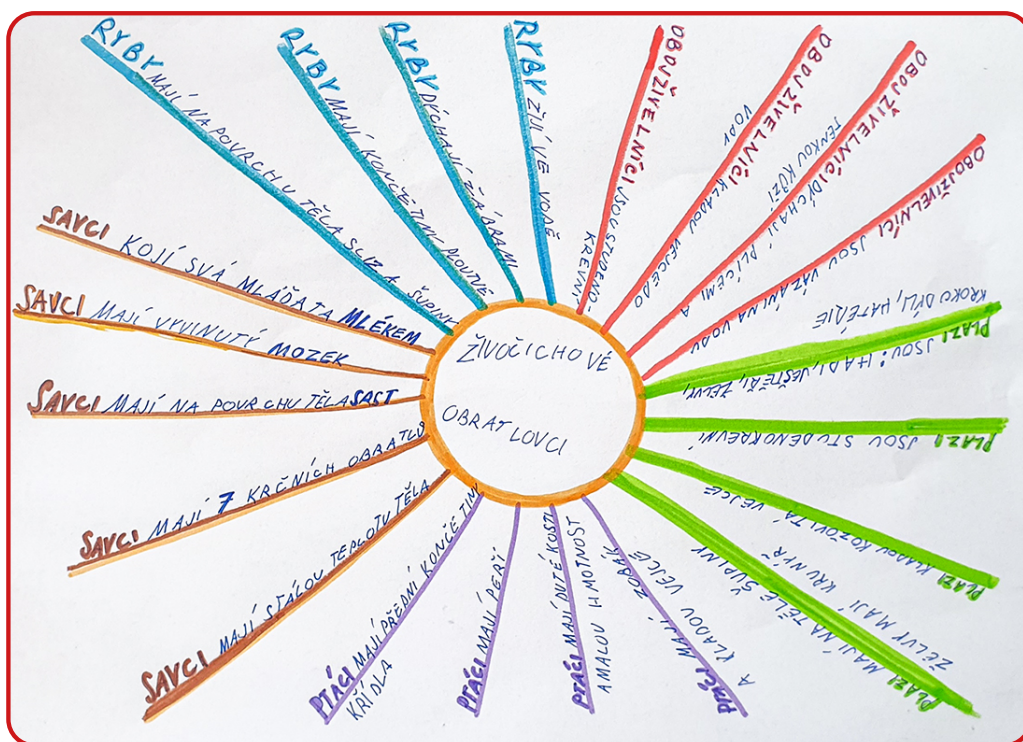 ŽIVOČICHOVÉ
OBRATLOVCI
RYBY MAJÍ NA POVRCHU TĚLA SLIZ A ŠUPINY
RYBY MAJÍ KONČETINY PLOUTVE
RYBY DÝCHAJÍ ŽÁBRAMI
RYBY ŽIJÍ VE VODĚ
OBOJŽIVELNÍCI JSOU STUDENO-
KREVNÍ
OBOJŽIVELNÍCI KLADOU VEJCE DO
VODY
OBOJŽIVELNÍCI DÝCHAJÍ PLÍCEMI A
TENKOU KŮŽÍ
OBOJŽIVELNÍCI JSOU VÁZÁNI NA VODY
PLAZI JSOU: HADI, JEŠTĚŘI, ŽELVY,
KROKODÝLI, HATÉRIE
PLAZI JSOU STUDENOKREVNÍ
PLAZI KLADOU KOŽOVITÁ VEJCE
PLAZI MAJÍ NA TĚLE ŠUPINY
ŽELVY MAJÍ KRUNÝŘ
PTÁCI MAJÍ ZOBÁK
A KLADOU VEJCE
PTÁCI MAJÍ DUTÉ KOSTI
A MALOU HMOTNOST
PTÁCI MAJÍ PEŘÍ
PTÁCI MAJÍ PŘEDNÍ KONČETINY
KŘÍDLA
SAVCI MAJÍ STÁLOU TEPLOTU TĚLA
SAVCI MAJÍ 7 KRČNÍCH OBRATLŮ
SAVCI MAJÍ NA POVRCHU TĚLA SAST
SAVCI MAJÍ VYVINUTÝ MOZEK
SAVCI KOJÍ SVÁ MLÁĎATA MLÉKEM